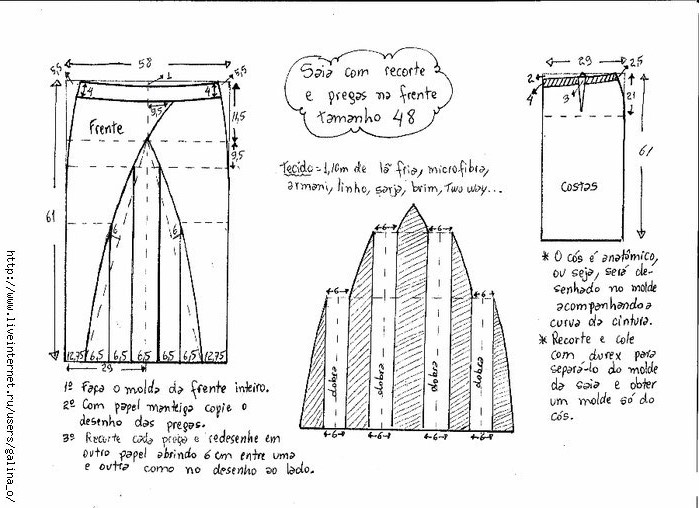 58
5,5
1
5,5
4
4
9,5
Frente
11,5
9,5
61
6
6
12,75 6,5 6,5 6,5 6,5 12,75
29
Saia com recorte
e pregas na frente
tamanho 48
Tecido = 1,10m de lã fria, microfibra,
armani, linho, sarja, brim, Two way...
←6→ ←6→
←6→ ←6→
dobra dobra dobra dobra
←6→ ←6→ ←6→ ←6→
29
2,5
2
4
3
21
61
costas
* O cós é anatômico,
ou seja, será de-
senhado no molde
acompanhando a
curva da cintura.
* Recorte e cole
com durex para
separá-lo do molde
da saia e obter
um molde só do
cós.
1º Faça o molde da frente inteiro.
2º Com papel manteiga copie o
desenho das pregas.
3º Recorte cada prega e redesenhe em
outro papel abrindo 6 cm entre uma
e outra como no desenho ao lado.
http://www.liveinternet.ru/users/galina_o/